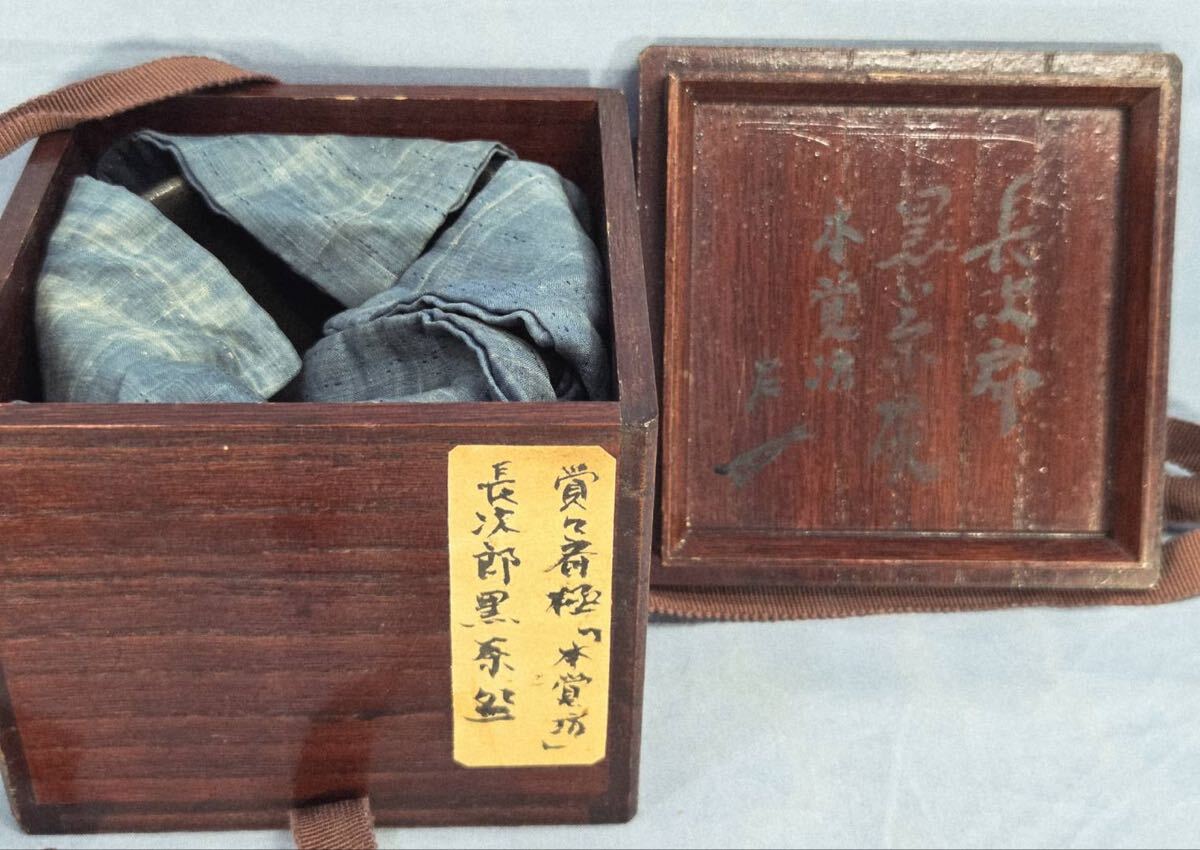 賞々斎極「本覚坊」
長次郎黒茶盌
長次郎
黒茶碗
本覚坊